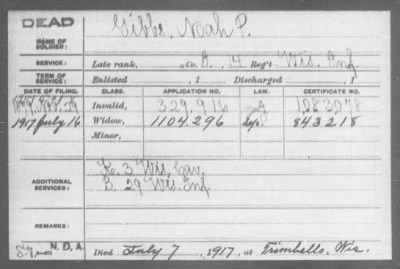 DEAD
NAME OF SOLDIER: Gibbs, Noah P.
SERVICE: Late rank, , Co. B, 4 Reg't Wis. Inf.
TERM OF SERVICE: Enlisted , 1 Discharged , 1
DATE OF FILING. CLASS. APPLICATION NO. LAW. CERTIFICATE NO.
Invalid, 329.916 1083078
1917 July 16 Widow, 1104.296 843218
Minor,
ADDITIONAL SERVICES: K. 3 Wis. Cav.
B. 29 Wis. Inf.
REMARKS:
N. D. A.
Died July 7, 1917, at Trimbello, Wis.